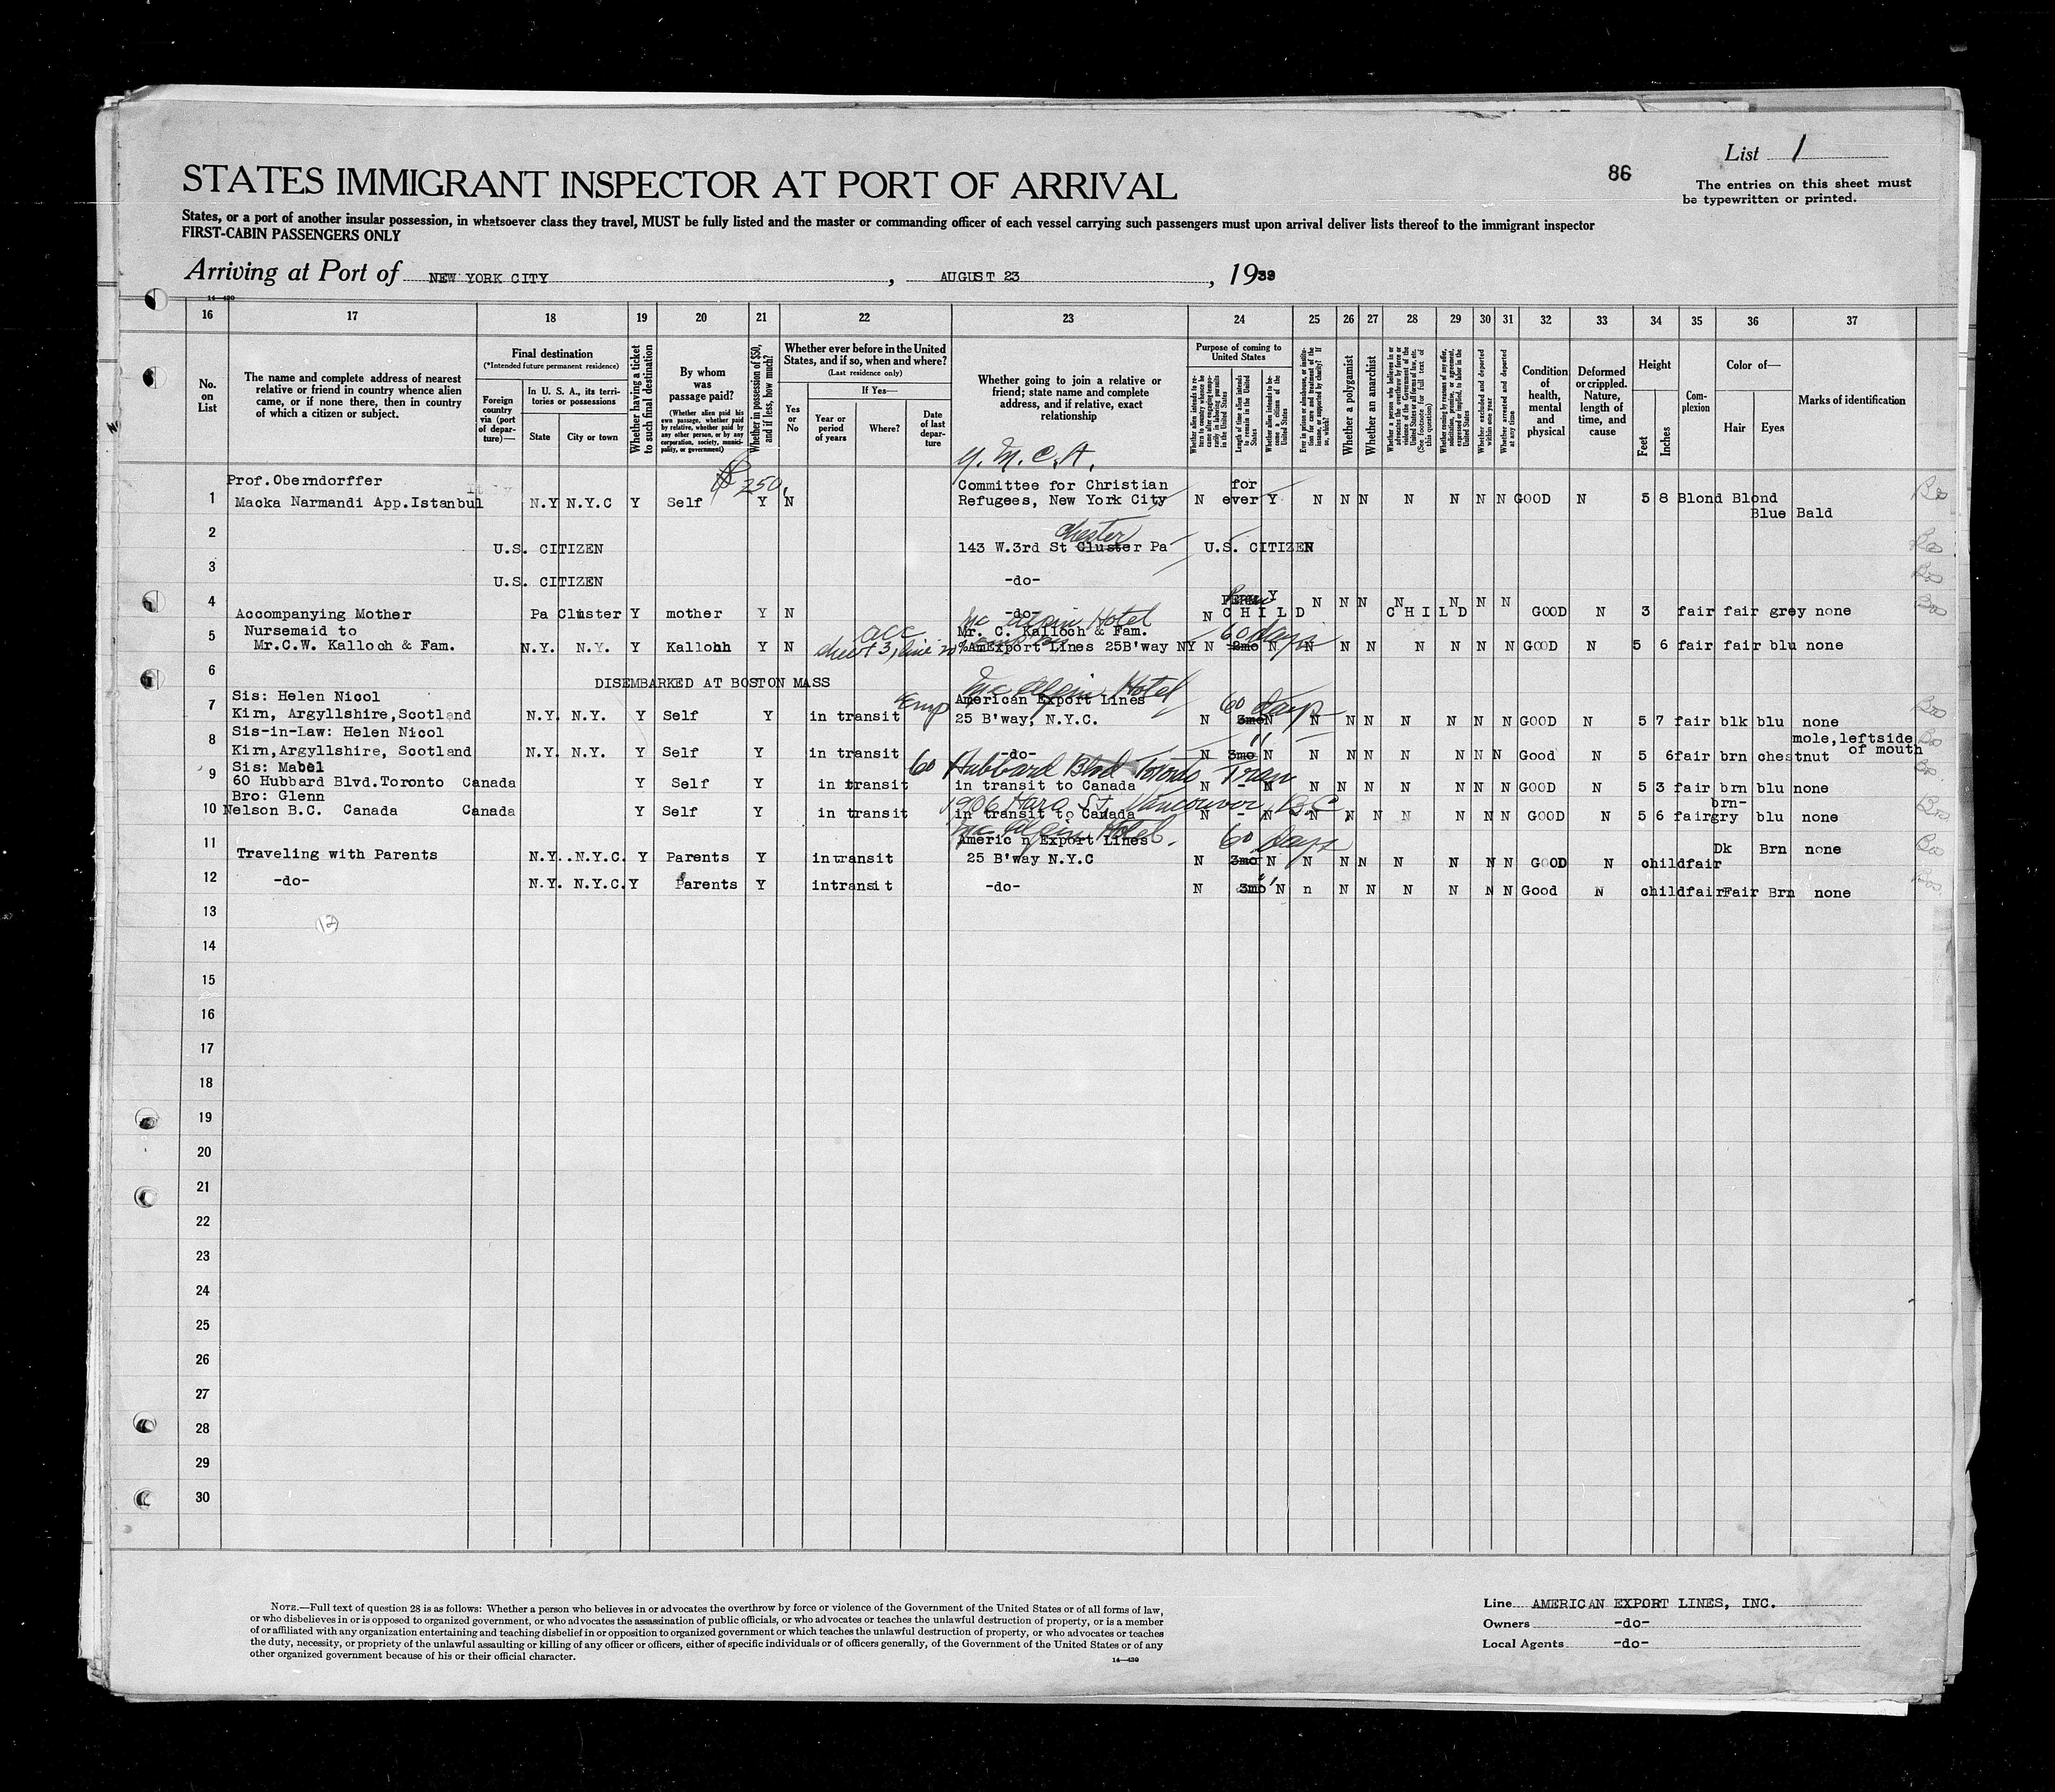 List 1
86
STATES IMMIGRANT INSPECTOR AT PORT OF ARRIVAL
The entries on this sheet must
be typewritten or printed.
States, or a port of another insular possession, in whatsoever class they travel, MUST be fully listed and the master or commanding officer of each vessel carrying such passengers must upon arrival deliver lists thereof to the immigrant inspector
FIRST-CABIN PASSENGERS ONLY
Arriving at Port of NEW YORK CITY , AUGUST 23 , 1939
14—430
16 17 18 19 20 21 22 23 24 25 26 27 28 29 30 31 32 33 34 35 36 37
No. on List
The name and complete address of nearest relative or friend in country whence alien came, or if none there, then in country of which a citizen or subject.
Final destination
(*Intended future permanent residence)
Foreign country via (port of departure)—
In U. S. A., its territories or possessions
State
City or town
Whether having a ticket to such final destination
By whom was passage paid?
(Whether alien paid his own passage, whether paid by relative, whether paid by any other person, or by any corporation, society, municipality, or government)
Whether in possession of $50, and if less, how much?
Whether ever before in the United States, and if so, when and where?
(Last residence only)
Yes or No
If Yes—
Year or period of years
Where?
Date of last departure
Whether going to join a relative or friend; state name and complete address, and if relative, exact relationship
Purpose of coming to United States
Whether alien intends to return to country whence he came after engaging temporarily in laboring pursuits in the United States
Length of time alien intends to remain in the United States
Whether alien intends to become a citizen of the United States
Ever in prison or almshouse, or institution for care and treatment of the insane, or supported by charity? If so, which?
Whether a polygamist
Whether an anarchist
Whether a person who believes in or advocates the overthrow by force or violence of the Government of the United States or all forms of law, etc. (See footnote for full text of this question)
Whether coming by reason of any offer, solicitation, promise, or agreement, expressed or implied, to labor in the United States
Whether excluded and deported within one year
Whether arrested and deported at any time
Condition of health, mental and physical
Deformed or crippled. Nature, length of time, and cause
Height
Feet
Inches
Complexion
Color of—
Hair
Eyes
Marks of identification
Y. M. C. A.
Prof.Oberndorffer $ 250. Committee for Christian for
1 Macka Narmandi App.Istanbul N.Y N.Y.C Y Self Y N Refugees, New York City N ever Y N N N N N N N GOOD N 5 8 Blond Blond
Blue Bald
Chester
2 U.S. CITIZEN 143 W.3rd St Cluster Pa U.S. CITIZEN
3 U.S. CITIZEN -do-
4 Accompanying Mother Pa Cluster Y mother Y N -do- N CHILD Y N N N N N N N CHILD GOOD N 3 fair fair grey none
Mc Alpin Hotel
Nursemaid to acc Mr. C. Kalloch & Fam. 60 days
5 Mr.C.W. Kalloch & Fam. N.Y. N.Y. Y Kalloch Y N sheet 3, line %AmExport Lines 25B'way NY N 2mo N N N N N N N N GOOD N 5 6 fair fair blu none
6 DISEMBARKED AT BOSTON MASS
Mc Alpin Hotel
Sis: Helen Nicol American Export Lines 60 days
7 Kirn, Argyllshire,Scotland N.Y. N.Y. Y Self Y in transit 25 B'way, N.Y.C. N 3mo N N N N N N N N GOOD N 5 7 fair blk blu none
Sis-in-Law: Helen Nicol mole,leftside
8 Kirn,Argyllshire, Scotland N.Y. N.Y. Y Self Y in transit -do- N 3mo N N N N N N N N Good N 5 6 fair brn chestnut of mouth
Sis: Mabel 60 Hubbard Blvd Toronto Tran
9 60 Hubbard Blvd.Toronto Canada Y Self Y in transit in transit to Canada N - N N N N N N N N GOOD N 5 3 fair brn blu none
Bro: Glenn 1906 Haro St. Vancouver, B.C. brn-
10 Nelson B.C. Canada Canada Y Self Y in transit in transit to Canada N - N N N N N N N N GOOD N 5 6 fair gry blu none
Mc Alpin Hotel.
Americ n Export Lines 60 days
11 Traveling with Parents N.Y. N.Y.C. Y Parents Y intransit 25 B'way N.Y.C N 3mo N N N N N N N N GOOD N child fair Dk Brn none
12 -do- N.Y. N.Y.C. Y Parents Y intransit -do- N 3mo N n N N N N N N Good N child fair Fair Brn none
13
12
14
15
16
17
18
19
20
21
22
23
24
25
26
27
28
29
30
NOTE.—Full text of question 28 is as follows: Whether a person who believes in or advocates the overthrow by force or violence of the Government of the United States or of all forms of law,
or who disbelieves in or is opposed to organized government, or who advocates the assassination of public officials, or who advocates or teaches the unlawful destruction of property, or is a member
of or affiliated with any organization entertaining and teaching disbelief in or opposition to organized government or which teaches the unlawful destruction of property, or who advocates or teaches
the duty, necessity, or propriety of the unlawful assaulting or killing of any officer or officers, either of specific individuals or of officers generally, of the Government of the United States or of any
other organized government because of his or their official character.
14—430
Line AMERICAN EXPORT LINES, INC.
Owners -do-
Local Agents -do-